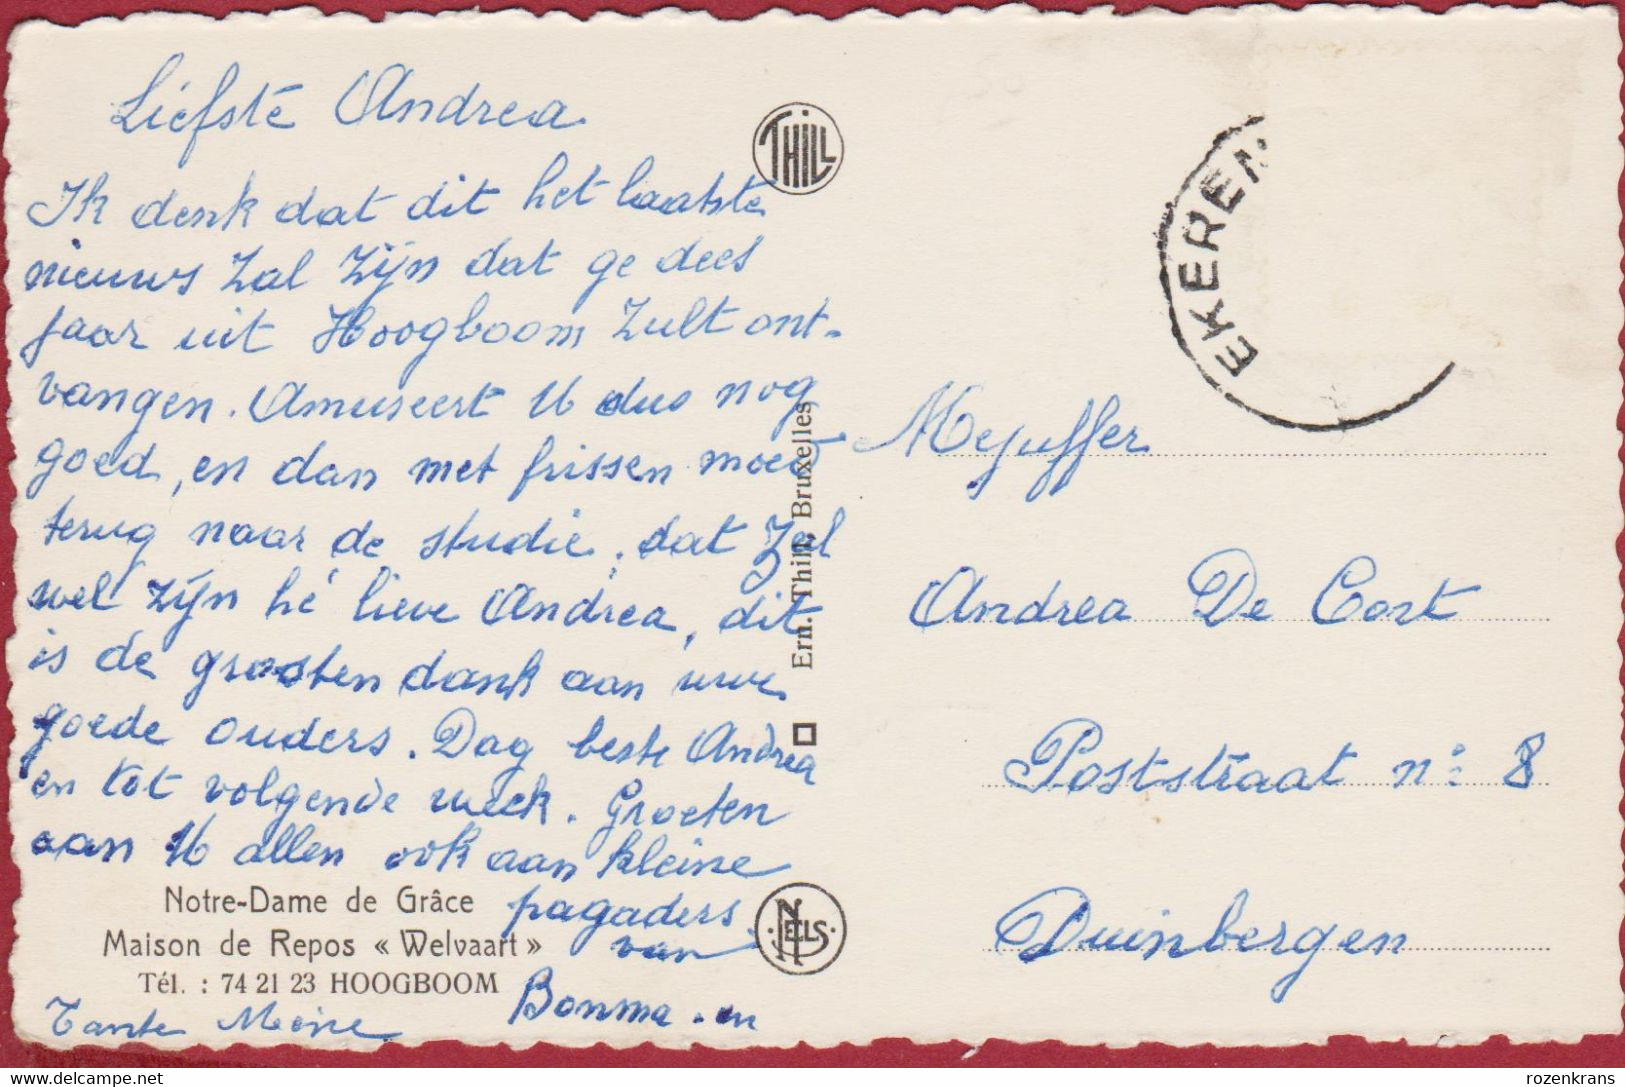 Liefste Andrea
Ik denk dat dit het laatste
nieuws zal zijn dat ge dees
jaar uit Hoogboom zult ont-
vangen. Amuseert U dus nog
goed, en dan met frissen moed
terug naar de studie, dat zal
wel zijn hé lieve Andrea, dit
is de grootsten dank aan uwe
goede ouders. Dag beste Andrea
en tot volgende week. Groeten
aan U allen ook aan kleine
pagaders
van
Bonma en
Tante Meine
Notre-Dame de Grâce
Maison de Repos « Welvaart »
Tél. : 74 21 23 HOOGBOOM
THILL
Ern. Thill, Bruxelles
NELS
EKEREN
Mejuffer
Andrea De Cort
Poststraat n: 8
Duinbergen
rozenkrans